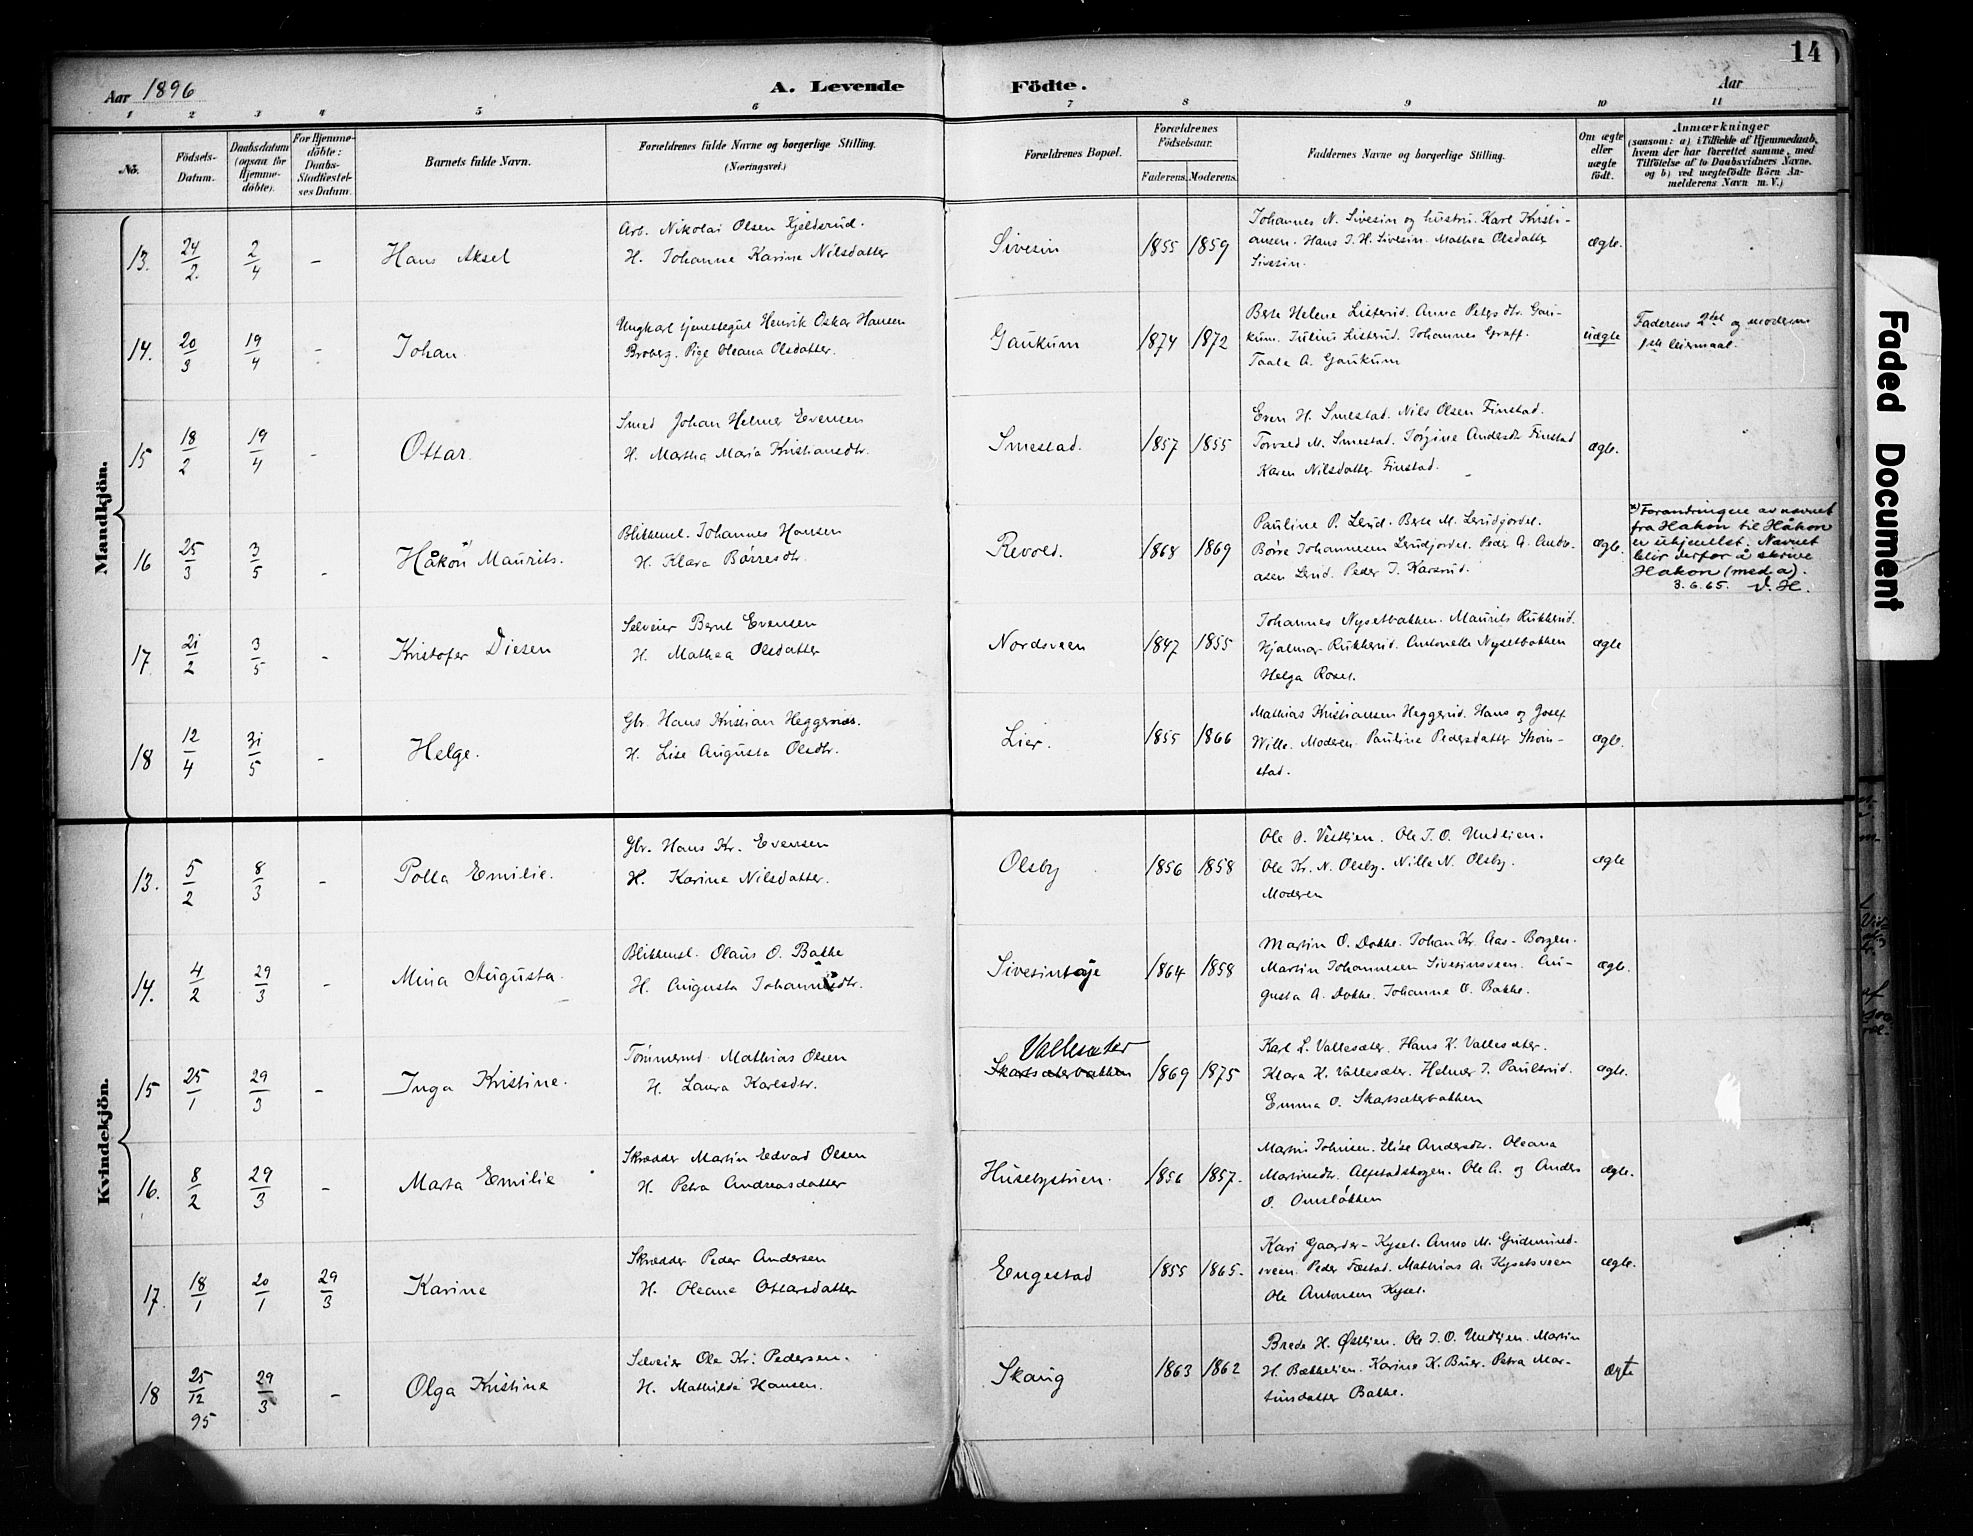 14
Aar 1896
A. Levende Födte.
Aar
1 2 3 4 5 6 7 8 9 10 11
No.
Födsels-
Datum.
Daabsdatum
(ogsaa for
Hjemme-
döbte).
For Hjemme-
döbte:
Daabs-
Stadfæstel-
ses Datum.
Barnets fulde Navn.
Forældrenes fulde Navne og borgerlige Stilling.
(Næringsvei.)
Forældrenes Bopæl.
Forældrenes
Födselsaar.
Faderens. Moderens.
Faddernes Navne og borgerlige Stilling.
Om ægte
eller
uægte
födt.
Anmærkninger
(saasom: a) i Tilfælde af Hjemmedaab,
hvem der har forrettet samme, med
Tilföielse af to Daabsvidners Navne,
og b) ved uægtefödte Börn An-
melderens Navn m. V.)
Mandkjön.
13. 24/2 2/4 – Hans Aksel
Arb. Nikolai Olsen Kjeldsrud.
H. Johanne Karine Nilsdatter
Sivesin 1855 1859
Johannes N. Sivesin og hustru. Karl Kristi-
ansen. Hans J. H. Sivesin. Mathea Olsdatter
Sivesin.
ægte.
14. 20/3 19/4 – Johan
Ungkarl tjenestegut Henrik Oskar Hansen
Broberg. Pige Oleana Olsdatter.
Gaukum 1874 1872
Berte Helene Listerud. Anna Petersdtr. Gau-
kum. Julius Listerud. Johannes Graff.
Taale A. Gaukum
uægte
Faderens 2det og moderens
1ste leiermaal.
15 18/2 19/4 – Ottar.
Smed Johan Helmer Evensen
H. Martha Maria Kristiansdtr.
Smestad. 1857 1855
Even H. Smestad. Nils Olsen Finstad.
Torvald M. Smestad. Jörgine Andersdtr Finstad
Karen Nilsdatter Finstad.
ægte.
16 25/3 3/5 – Håkon x) Maurits.
Blikkensl. Johannes Hansen
H. Klara Börresdtr.
Revold. 1868 1869
Pauline P. Lerud. Berte M. Lerudjordet.
Börre Johannesen Lerudjordet. Peder A. Andre-
asen Lerud. Peder J. Karsrud.
ægte.
x) Forandringen av navnet
fra Hakon til Håkon
er uhjemlet. Navnet
blir derfor å skrive
Hakon (med a).
3.6.65. V. H.
17 21/2 3/5 – Kristofer Diesen
Selveier Bernt Evensen
H. Mathea Olsdatter
Nordsveen 1847 1855
Johannes Nysetbakken. Maurits Rukkerud.
Hjalmar Rukkerud. Antonette Nysetbakken
Helga Roset.
ægte
18 12/4 31/5 – Helge.
Gbr. Hans Kristian Heggerud.
H. Lise Augusta Olsdtr.
Lier. 1855 1866
Mathias Kristiansen Heggerud. Hans og Josef
Wille. Moderen. Pauline Pedersdatter Skom-
stad.
ægte.
Kvindekjön.
13. 5/2 8/3 – Polla Emilie.
Gbr. Hans Kr. Evensen
H. Karine Nilsdatter.
Olsby 1856 1858
Ole O. Vestlien. Ole J. O. Undlien.
Ole Kr. N. Olsby. Nille N. Olsby.
Moderen
ægte
14. 4/2 29/3 – Mina Augusta.
Blikkensl. Olaus O. Bakke
H. Augusta Johannesdtr.
Sivesintøje 1864 1858
Martin O. Dokke. Johan Kr. Aas-Borgen.
Martin Johannesen Sivesinsveen. Au-
gusta A. Dokke. Johanne O. Bakke.
ægte.
15 25/1 29/3 – Inga Kristine.
Tömmermd. Mathias Olsen
H. Laura Karlsdtr.
Vallesæter
Skartsæterbakken 1869 1875
Karl L. Vallesæter. Hans K. Vallesæter.
Klara K. Vallesæter. Helmer J. Paulsrud.
Emma O. Skartsæterbakken
ægte.
16. 8/2 29/3 – Marta Emilie
Skrædder Martin Edvard Olsen
H. Petra Andreasdatter
Husebystuen. 1856 1857.
Martin Johnsen. Elise Andersdtr. Oleana
Martinsdtr. Alfstadskogen. Ole A. og Anders
O. Omslökken
ægte.
17. 18/1 20/1 29/3 Karine
Skrædder Peder Andersen
H. Oleane Ottarsdatter
Engestad 1855 1865.
Kari Gaarder-Kyset. Anna M. Gudmund-
sveen. Peder Festad. Mathias A. Kysetsveen
Ole Antonsen Kyset.
ægte.
18 25/12 95 29/3 – Olga Kristine
Selveier Ole Kr. Pedersen.
H. Mathilde Hansen.
Skaug 1863 1862
Brede H. Østlien. Ole J. O. Undlien. Martin
H. Bækkelien. Karine K. Buer. Petra Mar-
tinsdatter Bakke.
ægte
Faded Document